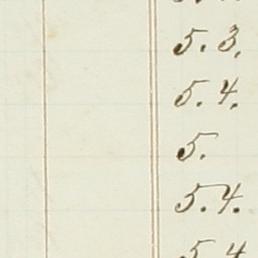 5. 3.
5. 4.
5.
5. 4.
5 4